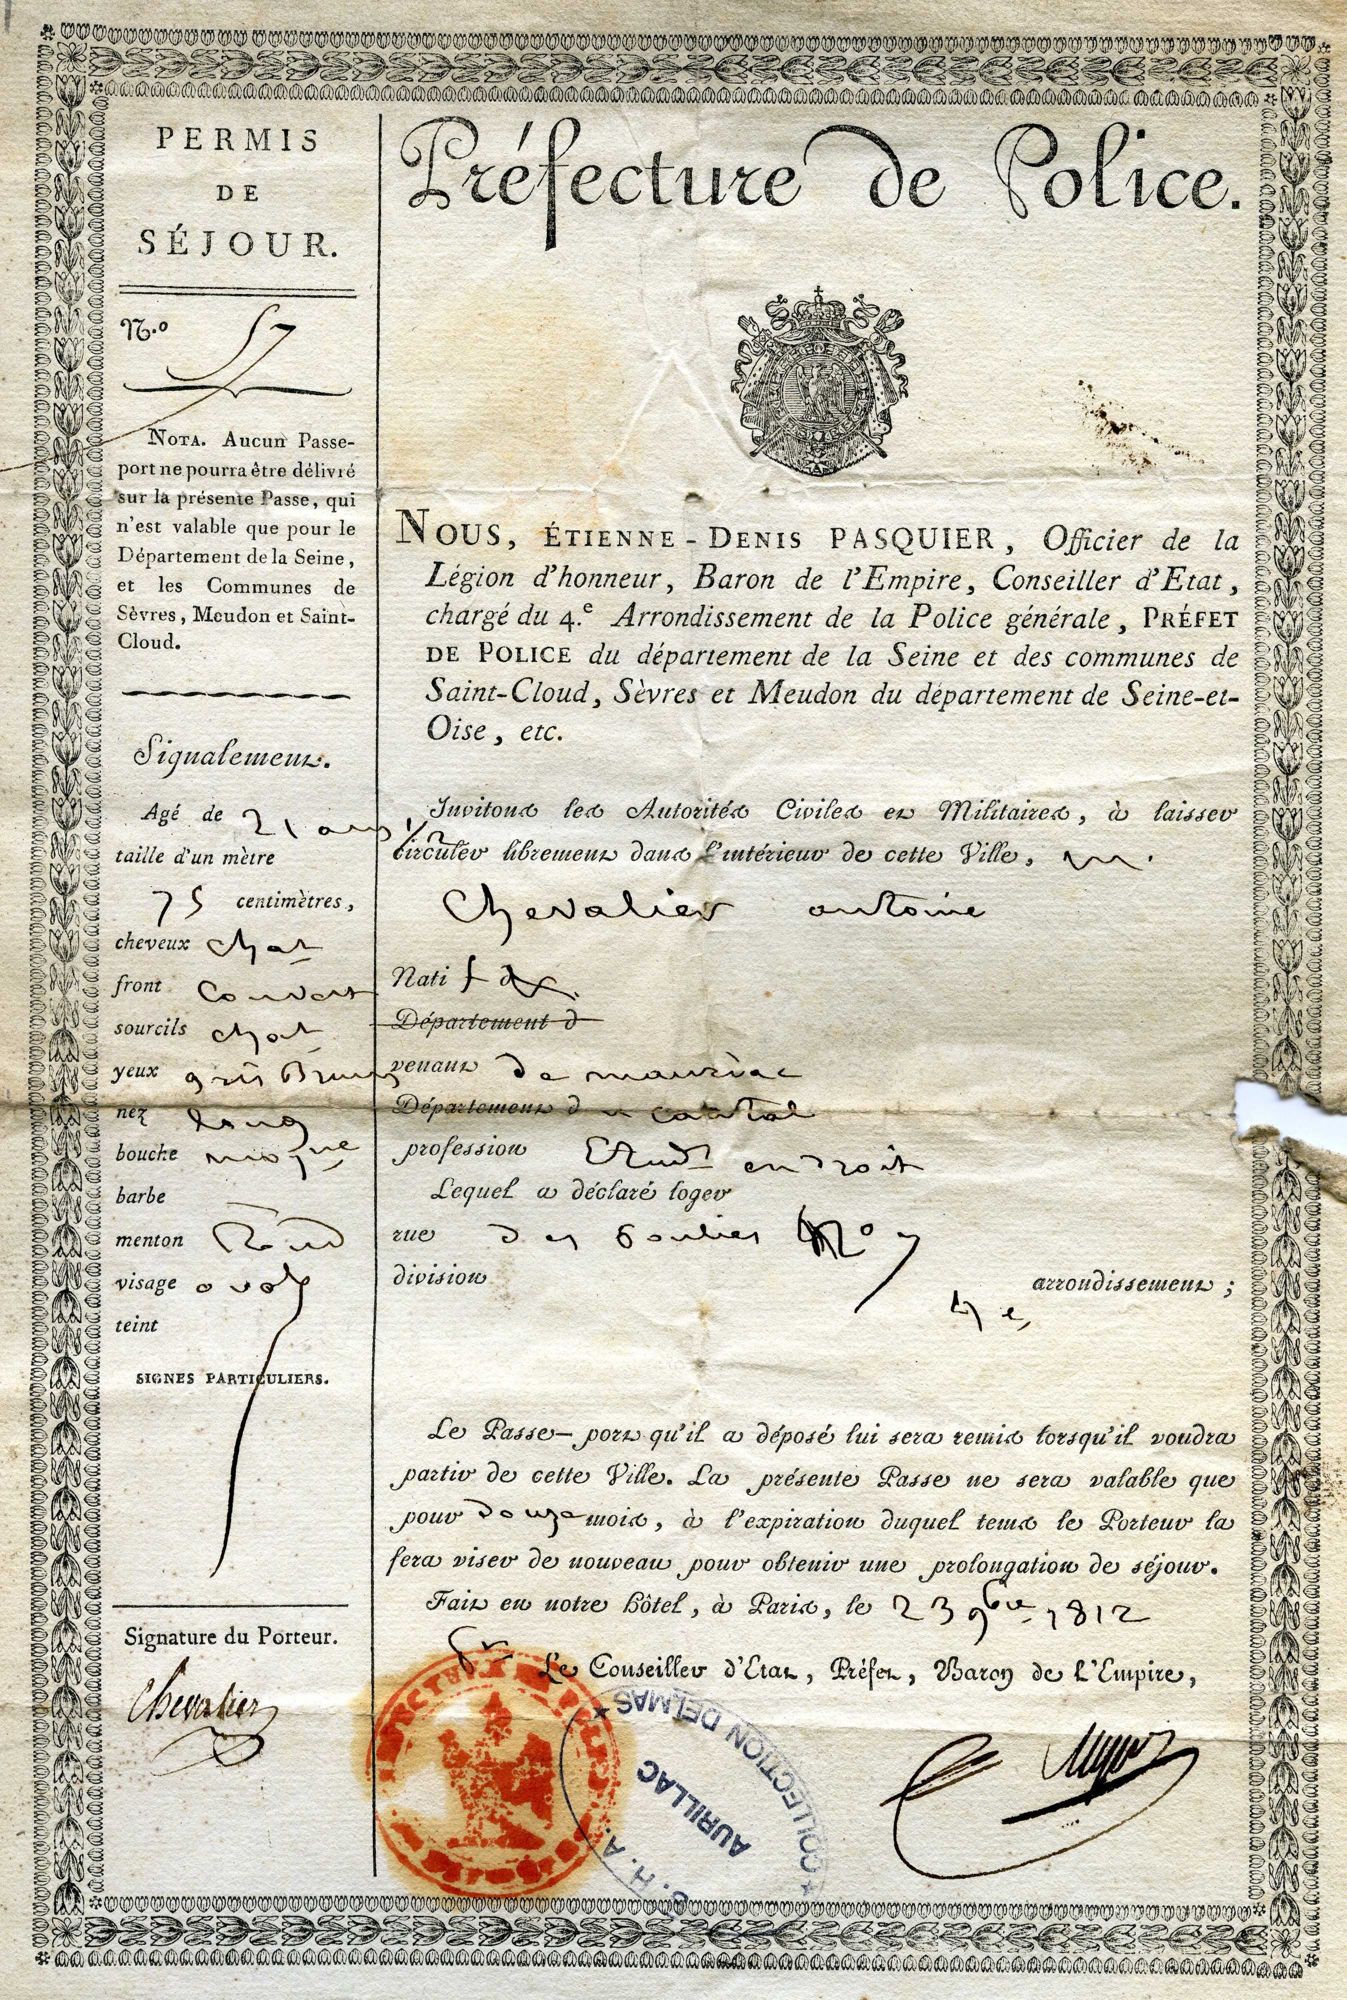 PERMIS
DE
SÉJOUR.
N.o 57
NOTA. Aucun Passe-
port ne pourra être délivré
sur la présente Passe, qui
n'est valable que pour le
Département de la Seine,
et les Communes de
Sèvres, Meudon et Saint-
Cloud.
Signalement.
Agé de 21 ans 1/2
taille d'un mètre
75 centimètres,
cheveux chat
front couvert
sourcils chat
yeux gris Bruns
nez long
bouche moyne
barbe
menton Rond
visage ovale
teint
SIGNES PARTICULIERS.
Signature du Porteur.
Chevalier
Préfecture de Police.
NOUS, ÉTIENNE-DENIS PASQUIER, Officier de la
Légion d'honneur, Baron de l'Empire, Conseiller d'Etat,
chargé du 4.e Arrondissement de la Police générale, PRÉFET
DE POLICE du département de la Seine et des communes de
Saint-Cloud, Sèvres et Meudon du département de Seine-et-
Oise, etc.
Invitons les Autorités Civiles et Militaires, à laisser
circuler librement dans l'intérieur de cette Ville, m.
Chevalier antoine
Natif de
Département d
venant de mauriac
Département du cantal
profession Etudt en droit
Lequel a déclaré loger
rue des No 7
division 4e arrondissement;
Le Passe-port qu'il a déposé lui sera remis lorsqu'il voudra
partir de cette Ville. La présente Passe ne sera valable que
pour douze mois, à l'expiration duquel tems le Porteur la
fera viser de nouveau pour obtenir une prolongation de séjour.
Fait en notre hôtel, à Paris, le 23 9bre 1812
Pr Le Conseiller d'Etat, Préfet, Baron de l'Empire,
S. H. A.
AURILLAC
* COLLECTION DELMAS *